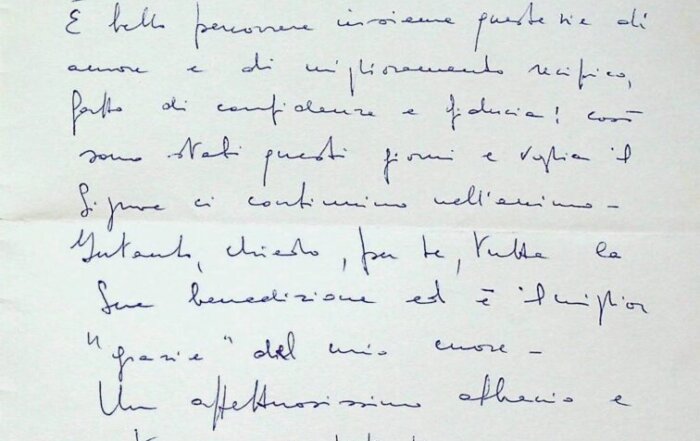 È bello percorrere insieme queste vie di
amore e di miglioramento recifico,
fatto di confidenze e fiducia! così
sono stati questi giorni e voglia il
Signore ci continuino nell'animo -
Intanto, chiedo, per te, tutta la
Sua benedizione ed è il miglior
"grazie" del mio cuore -
Un affettuosissimo abbraccio e